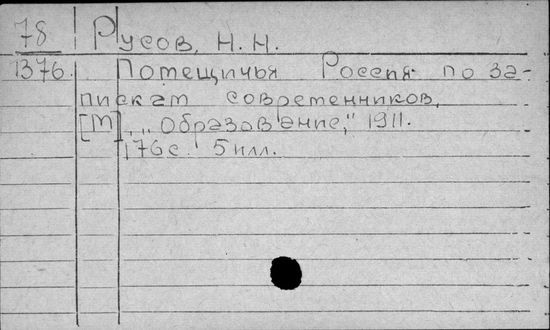 78 Русов, Н. Н.
1376. Помещичья Россия по за-
пискам современников.
[М], „Образование," 1911.
176с. 5 илл.